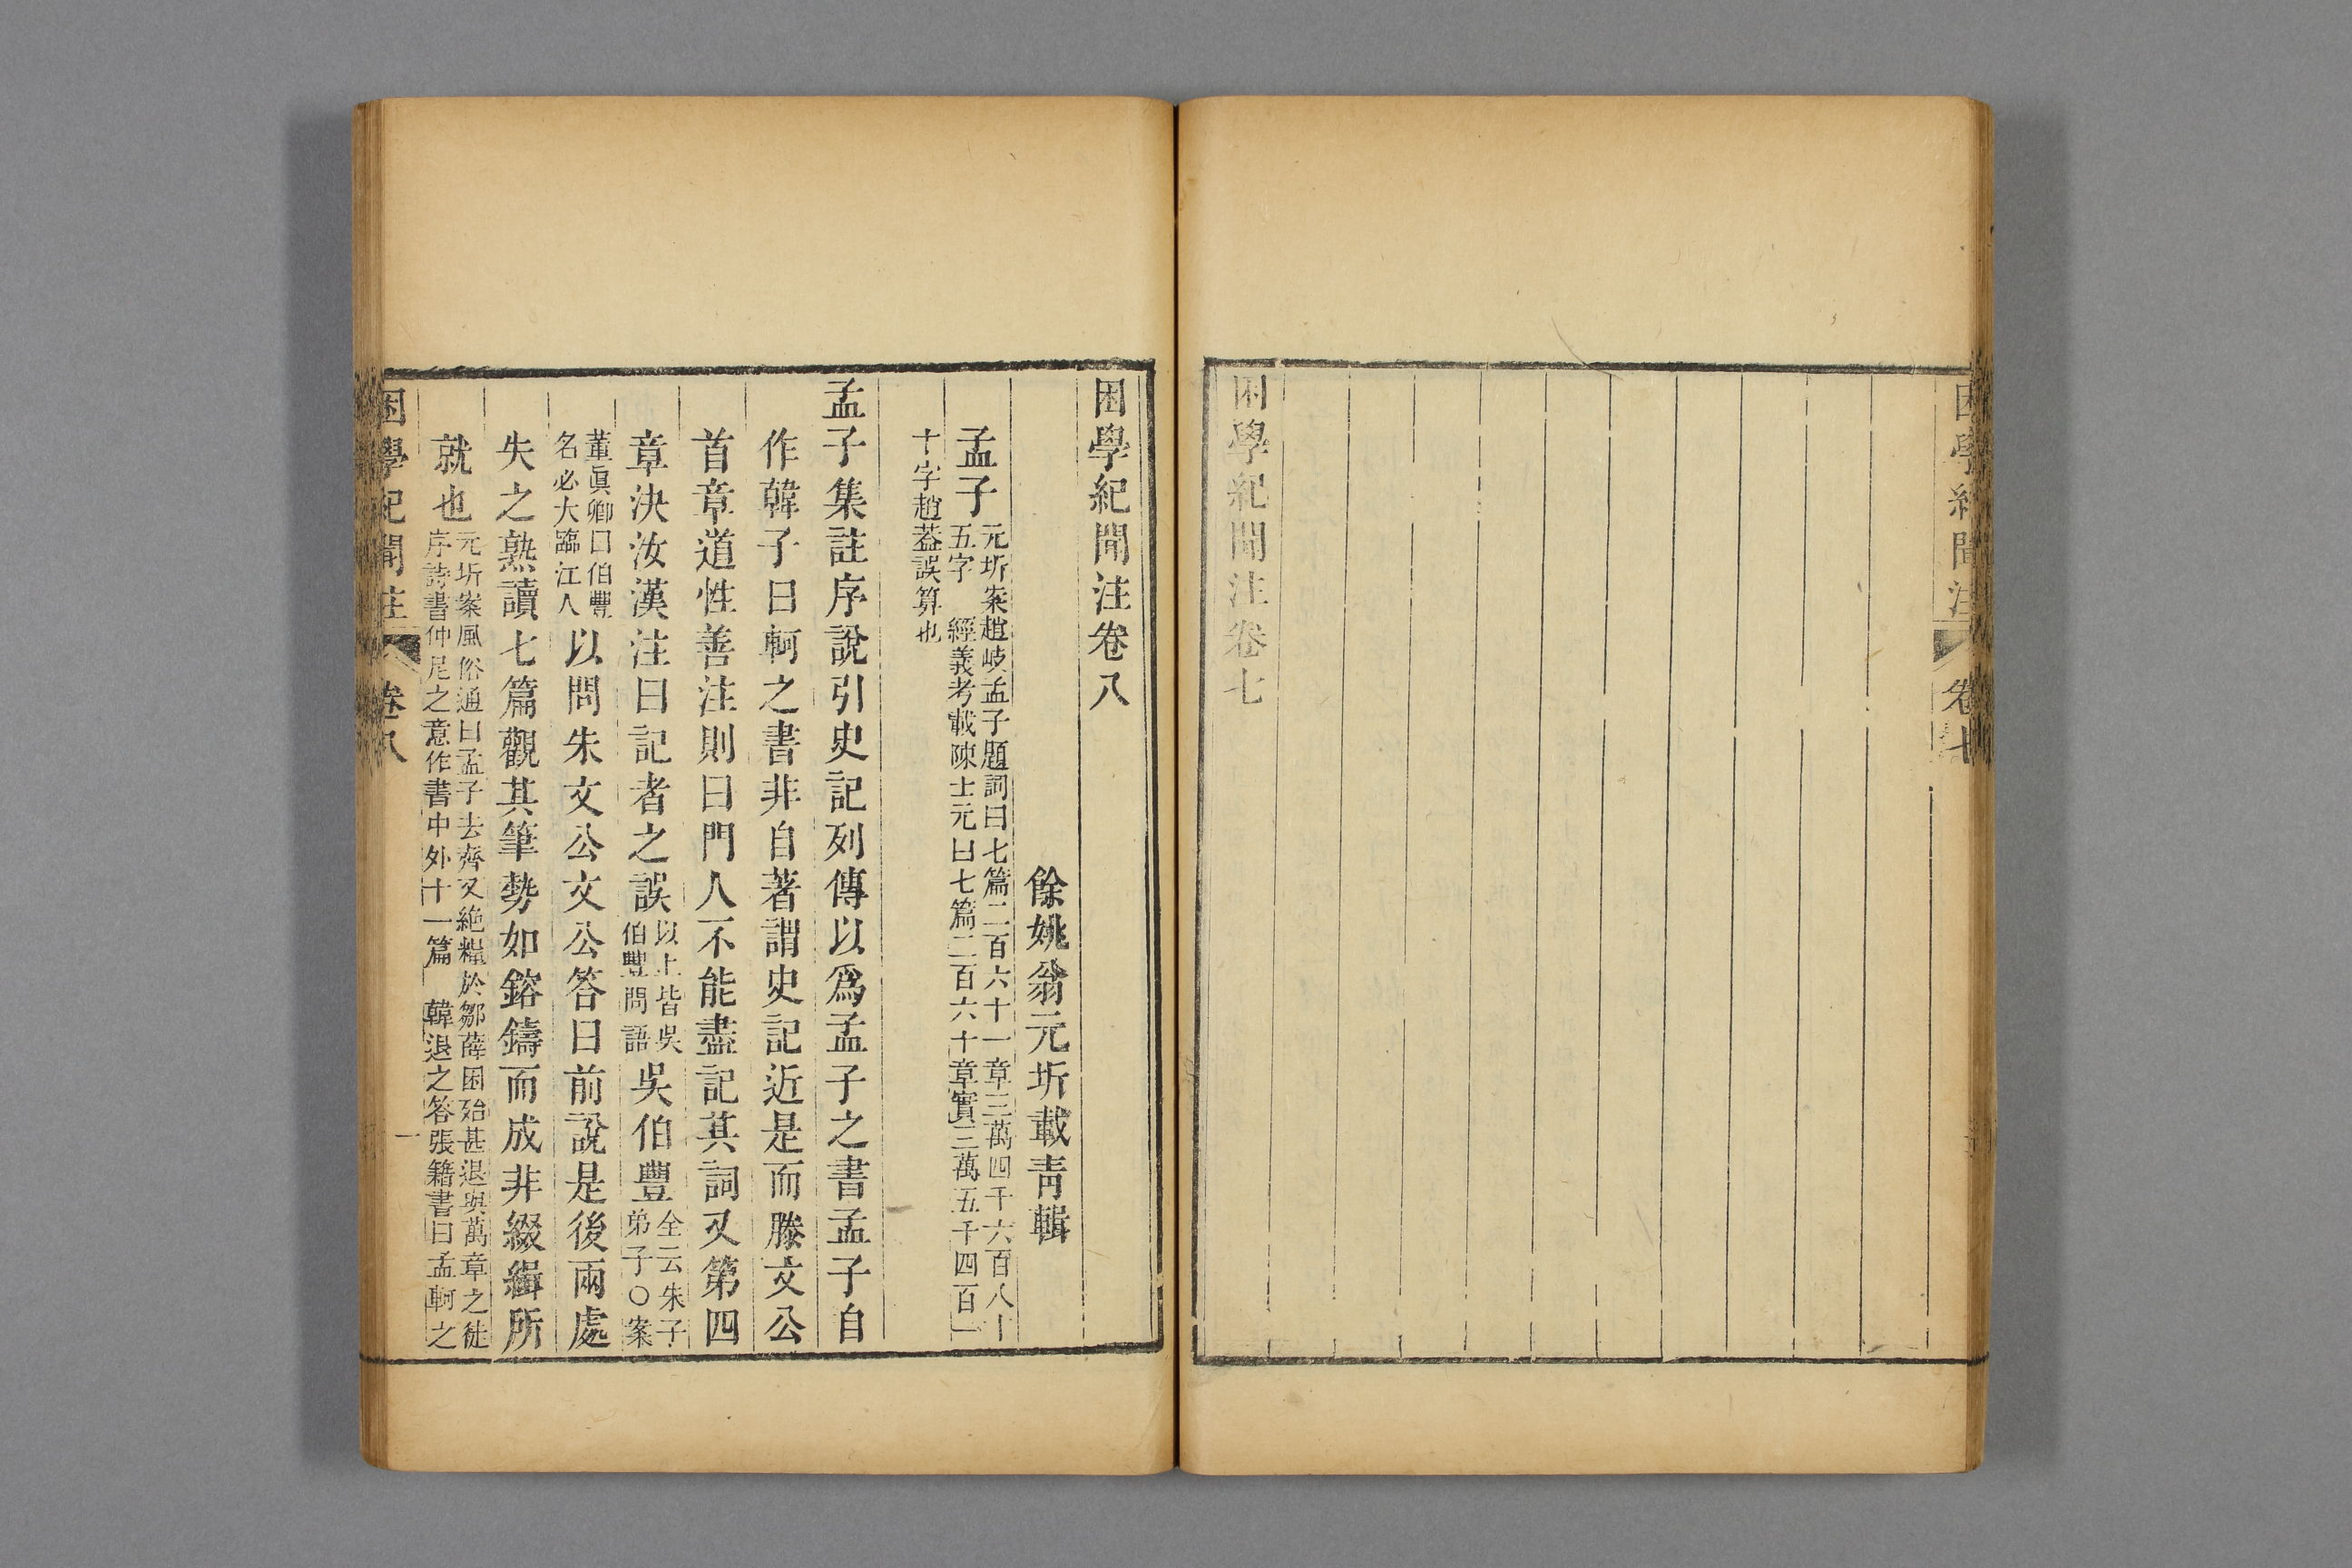 困學紀聞注
卷七
困學紀聞注卷七
困學紀聞注卷八
餘姚翁元圻載青輯
孟子元圻案趙岐孟子題詞曰七篇二百六十一章三萬四千六百八十
五字 經義考載陳士元曰七篇二百六十章實三萬五千四百一
十字趙葢誤算也
孟子集註序說引史記列傳以爲孟子之書孟子自
作韓子曰軻之書非自著謂史記近是而滕文公
首章道性善注則曰門人不能盡記其詞又第四
章決汝漢注曰記者之誤以上皆吳伯豐問語吳伯豐全云朱子弟子○案
董眞卿曰伯豐名必大臨江人以問朱文公文公答曰前說是後兩處
失之熟讀七篇觀其筆勢如鎔鑄而成非綴緝所
就也元圻案風俗通曰孟子去齊又絶糧於鄒薛困殆甚退與萬章之徒
序詩書仲尼之意作書中外十一篇 韓退之答張籍書曰孟軻之
困學紀聞注
卷八
一